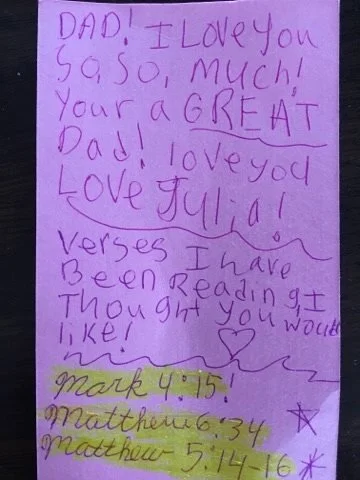 DAD! I Love you
So, so, much!
Your a GREAT
Dad! love you
LOVE Julia!
Verses I have
Been Reading, I
Thought you would
like!
Mark 4:15!
Matthew 6:34
Matthew 5:14-16